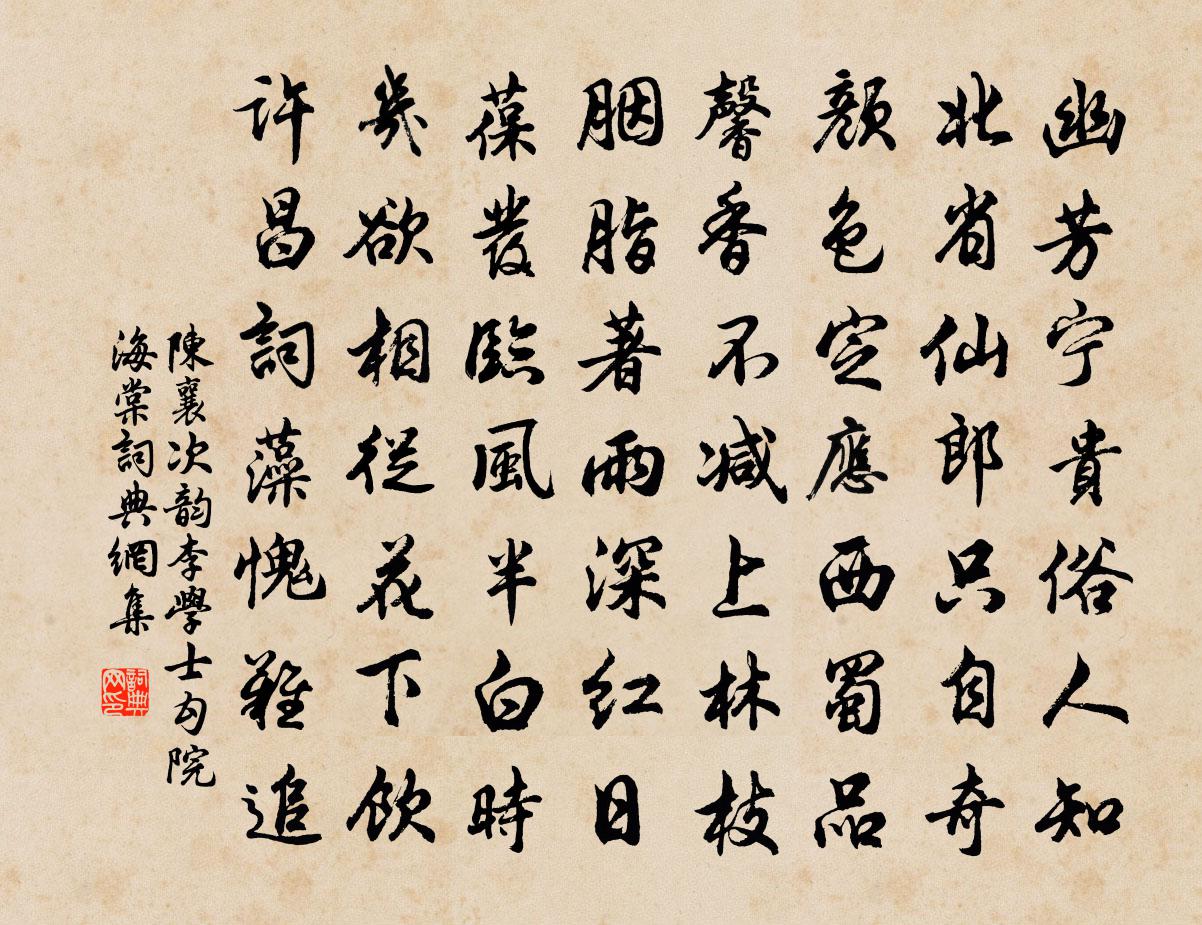 幽芳宁貴俗人知
北省仙郎只自奇
顏色定應西蜀品
馨香不減上林枝
胭脂著雨深紅日
葆發臨風半白時
幾欲相從花下飲
許昌詞藻愧難追
陳襄次韵李學士勾院
海棠詞典網集
詞典
网印